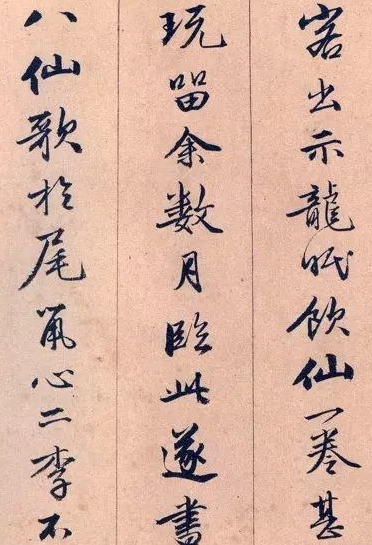 客出示龍眠飲仙一卷甚
玩留余数月臨此遂書
八仙歌於尾心二李不